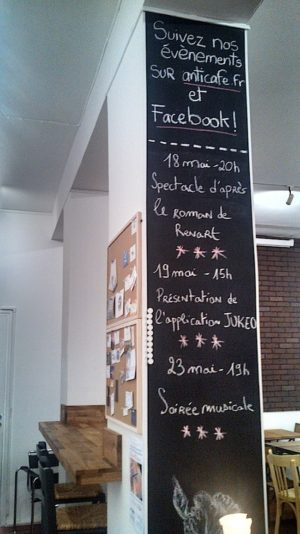 Suivez nos
évènements
SUR anticafe.fr
et
Facebook!
18 mai - 20h
Spectacle d'après
le ROMAN de
Renart
19 mai - 15h
PRÉSENTATION de
l'application JUKEO
23 mai - 19h
Soirée musicale